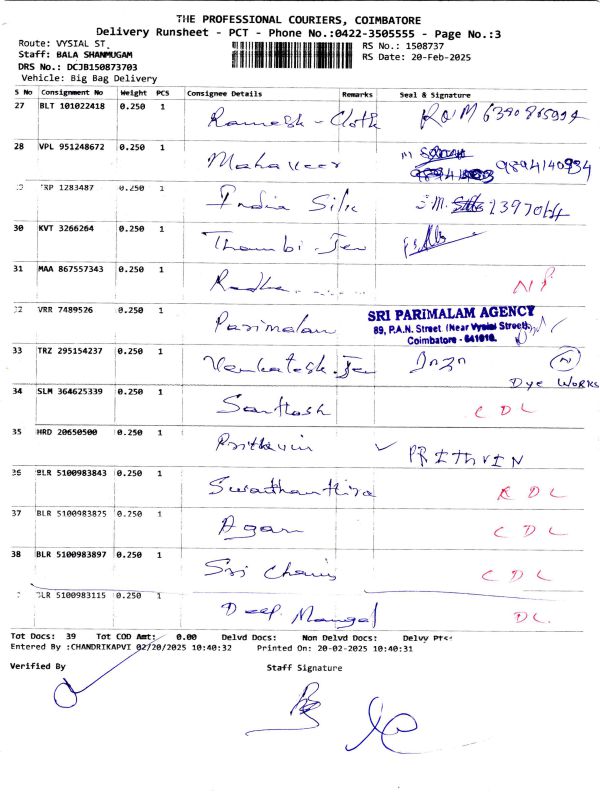 THE PROFESSIONAL COURIERS, COIMBATORE
Delivery Runsheet - PCT - Phone No.:0422-3505555 - Page No.:3
Route: VYSIAL ST
RS No.: 1508737
Staff: BALA SHANMUGAM
RS Date: 20-Feb-2025
DRS No.: DCJB150873703
Vehicle: Big Bag Delivery
S No Consignment No Weight PCS Consignee Details Remarks Seal & Signature
27 BLT 101022418 0.250 1 Ramesh - Cloth
28 VPL 951248672 0.250 1 Mahaveer 9894140934
TRP 1283487 0.250 1 India Silk
30 KVT 3266264 0.250 1 Thambi
31 MAA 867557343 0.250 1 Radha
VRR 7489526 0.250 1 Parimalam SRI PARIMALAM AGENCY
89, P.A.N. Street, (Near Vysial Street),
Coimbatore - 641018.
33 TRZ 295154237 0.250 1 Venkatesh N
Dye Works
34 SLM 364625339 0.250 1 Santhosh C D L
35 HRD 20650500 0.250 1 Prithvin ✓ PRITHVIN
36 BLR 5100983843 0.250 1 D L
37 BLR 5100983825 0.250 1 Agan C D L
38 BLR 5100983897 0.250 1 Sri C D L
BLR 5100983115 0.250 1 Deep Mangal DL.
Tot Docs: 39 Tot COD Amt: 0.00 Delvd Docs: Non Delvd Docs: Delvy
Entered By :CHANDRIKAPVI 02/20/2025 10:40:32 Printed On: 20-02-2025 10:40:31
Verified By Staff Signature